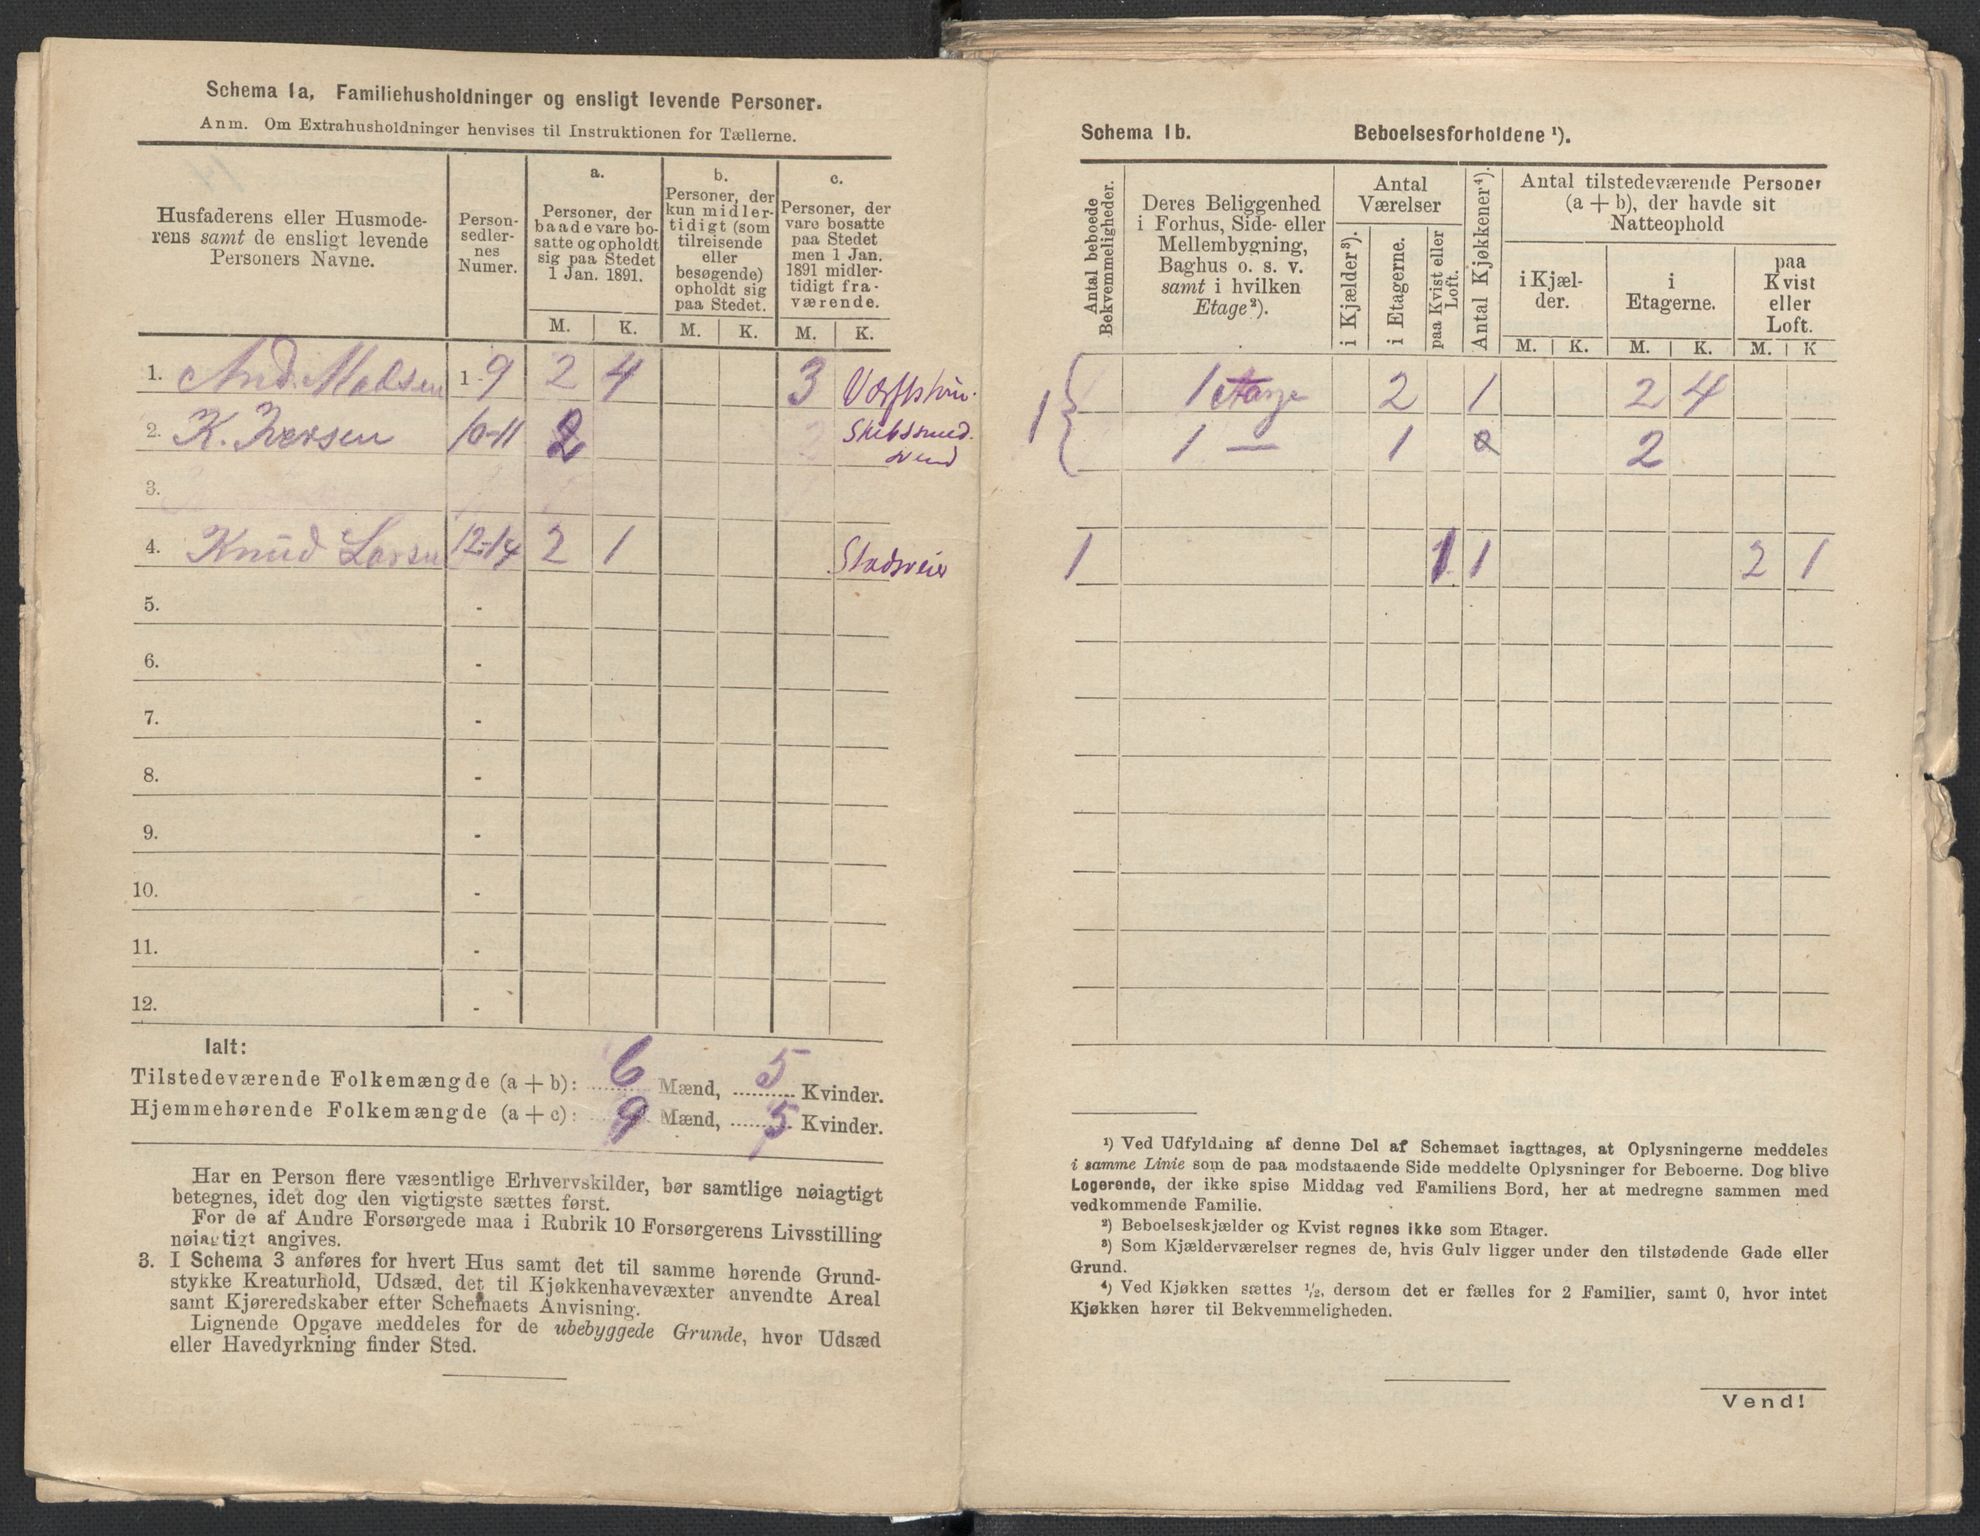 Schema 1a, Familiehusholdninger og ensligt levende Personer.
Anm. Om Extrahusholdninger henvises til Instruktionen for Tællerne.
Husfaderens eller Husmode-
rens samt de ensligt levende
Personers Navne.
Person-
sedler-
nes
Numer.
a.
Personer, der
baade vare bo-
satte og opholdt
sig paa Stedet
1 Jan. 1891.
b.
Personer, der
kun midler-
tidigt (som
tilreisende
eller
besøgende)
opholdt sig
paa Stedet.
c.
Personer, der
vare bosatte
paa Stedet
men 1 Jan.
1891 midler-
tidigt fra-
værende.
M. K. M. K. M. K.
1. And. Madsen 1-9 2 4 3
2. K. Iversen 10-11 2 Skibssmed.
svend
3.
4. Knud Larsen 12-14 2 1
5. -
6. -
7. -
8. -
9. -
10. -
11. -
12. -
Ialt:
Tilstedeværende Folkemængde (a + b): 6 Mænd, 5 Kvinder.
Hjemmehørende Folkemængde (a + c): 9 Mænd, 5 Kvinder.
Har en Person flere væsentlige Erhvervskilder, bør samtlige nøiagtigt
betegnes, idet dog den vigtigste sættes først.
For de af Andre Forsørgede maa i Rubrik 10 Forsørgerens Livsstilling
nøiagtigt angives.
3. I Schema 3 anføres for hvert Hus samt det til samme hørende Grund-
stykke Kreaturhold, Udsæd, det til Kjøkkenhavevæxter anvendte Areal
samt Kjøreredskaber efter Schemaets Anvisning.
Lignende Opgave meddeles for de ubebyggede Grunde, hvor Udsæd
eller Havedyrkning finder Sted.
Schema 1b. Beboelsesforholdene ¹).
Antal beboede
Bekvemmeligheder.
Deres Beliggenhed
i Forhus, Side- eller
Mellembygning,
Baghus o. s. v.
samt i hvilken
Etage²).
Antal
Værelser
i Kjælder³).
i Etagerne.
paa Kvist eller
Loft.
Antal Kjøkkener⁴).
Antal tilstedeværende Personer
(a + b), der havde sit
Natteophold
i Kjæl-
der.
i
Etagerne.
paa
Kvist
eller
Loft.
M. K. M. K. M. K
1 1 Etage 2 1 2 4
1 — 1 0 2
1 1 1 2 1
¹) Ved Udfyldning af denne Del af Schemaet iagttages, at Oplysningerne meddeles
i samme Linie som de paa modstaaende Side meddelte Oplysninger for Beboerne. Dog blive
Logerende, der ikke spise Middag ved Familiens Bord, her at medregne sammen med
vedkommende Familie.
²) Beboelseskjælder og Kvist regnes ikke som Etager.
³) Som Kjælderværelser regnes de, hvis Gulv ligger under den tilstødende Gade eller
Grund.
⁴) Ved Kjøkken sættes ½, dersom det er fælles for 2 Familier, samt 0, hvor intet
Kjøkken hører til Bekvemmeligheden.
Vend!